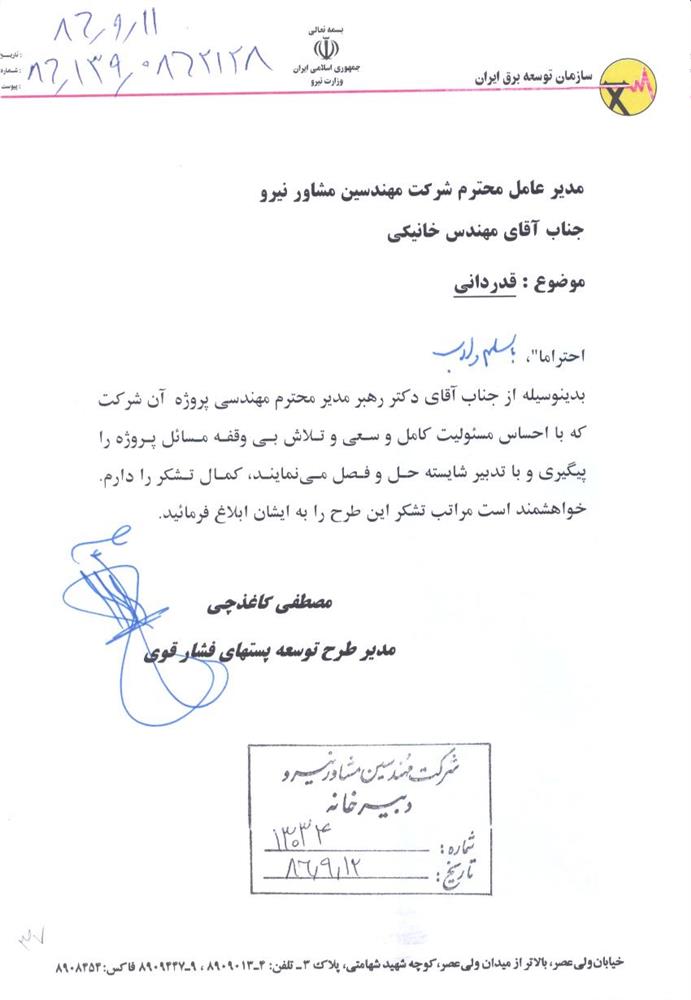 بسمه تعالی
جمهوری اسلامی ایران
وزارت نیرو
سازمان توسعه برق ایران
تاریخ : ۸۶/۹/۱۱
شماره : ۸۶/۱۳۹/۰۸۶۲۱۲۸
پیوست :
مدیر عامل محترم شرکت مهندسین مشاور نیرو
جناب آقای مهندس خانیکی
موضوع : قدردانی
احتراما"، باسلام و ادب
بدینوسیله از جناب آقای دکتر رهبر مدیر محترم مهندسی پروژه آن شرکت
که با احساس مسئولیت کامل و سعی و تلاش بی وقفه مسائل پروژه را
پیگیری و با تدبیر شایسته حل و فصل می‌نمایند، کمال تشکر را دارم.
خواهشمند است مراتب تشکر این طرح را به ایشان ابلاغ فرمائید.
مصطفی کاغذچی
مدیر طرح توسعه پستهای فشار قوی
شرکت مهندسین مشاور نیرو
دبیرخانه
شماره : ۱۳۰۳۴
تاریخ : ۸۶/۹/۱۲
۳۷
خیابان ولی عصر، بالاتر از میدان ولی عصر، کوچه شهید شهامتی، پلاک ۳ ـ تلفن: ۴ـ۸۹۰۹۰۱۳ ، ۹ـ۸۹۰۹۴۴۷ فاکس: ۸۹۰۸۴۵۴